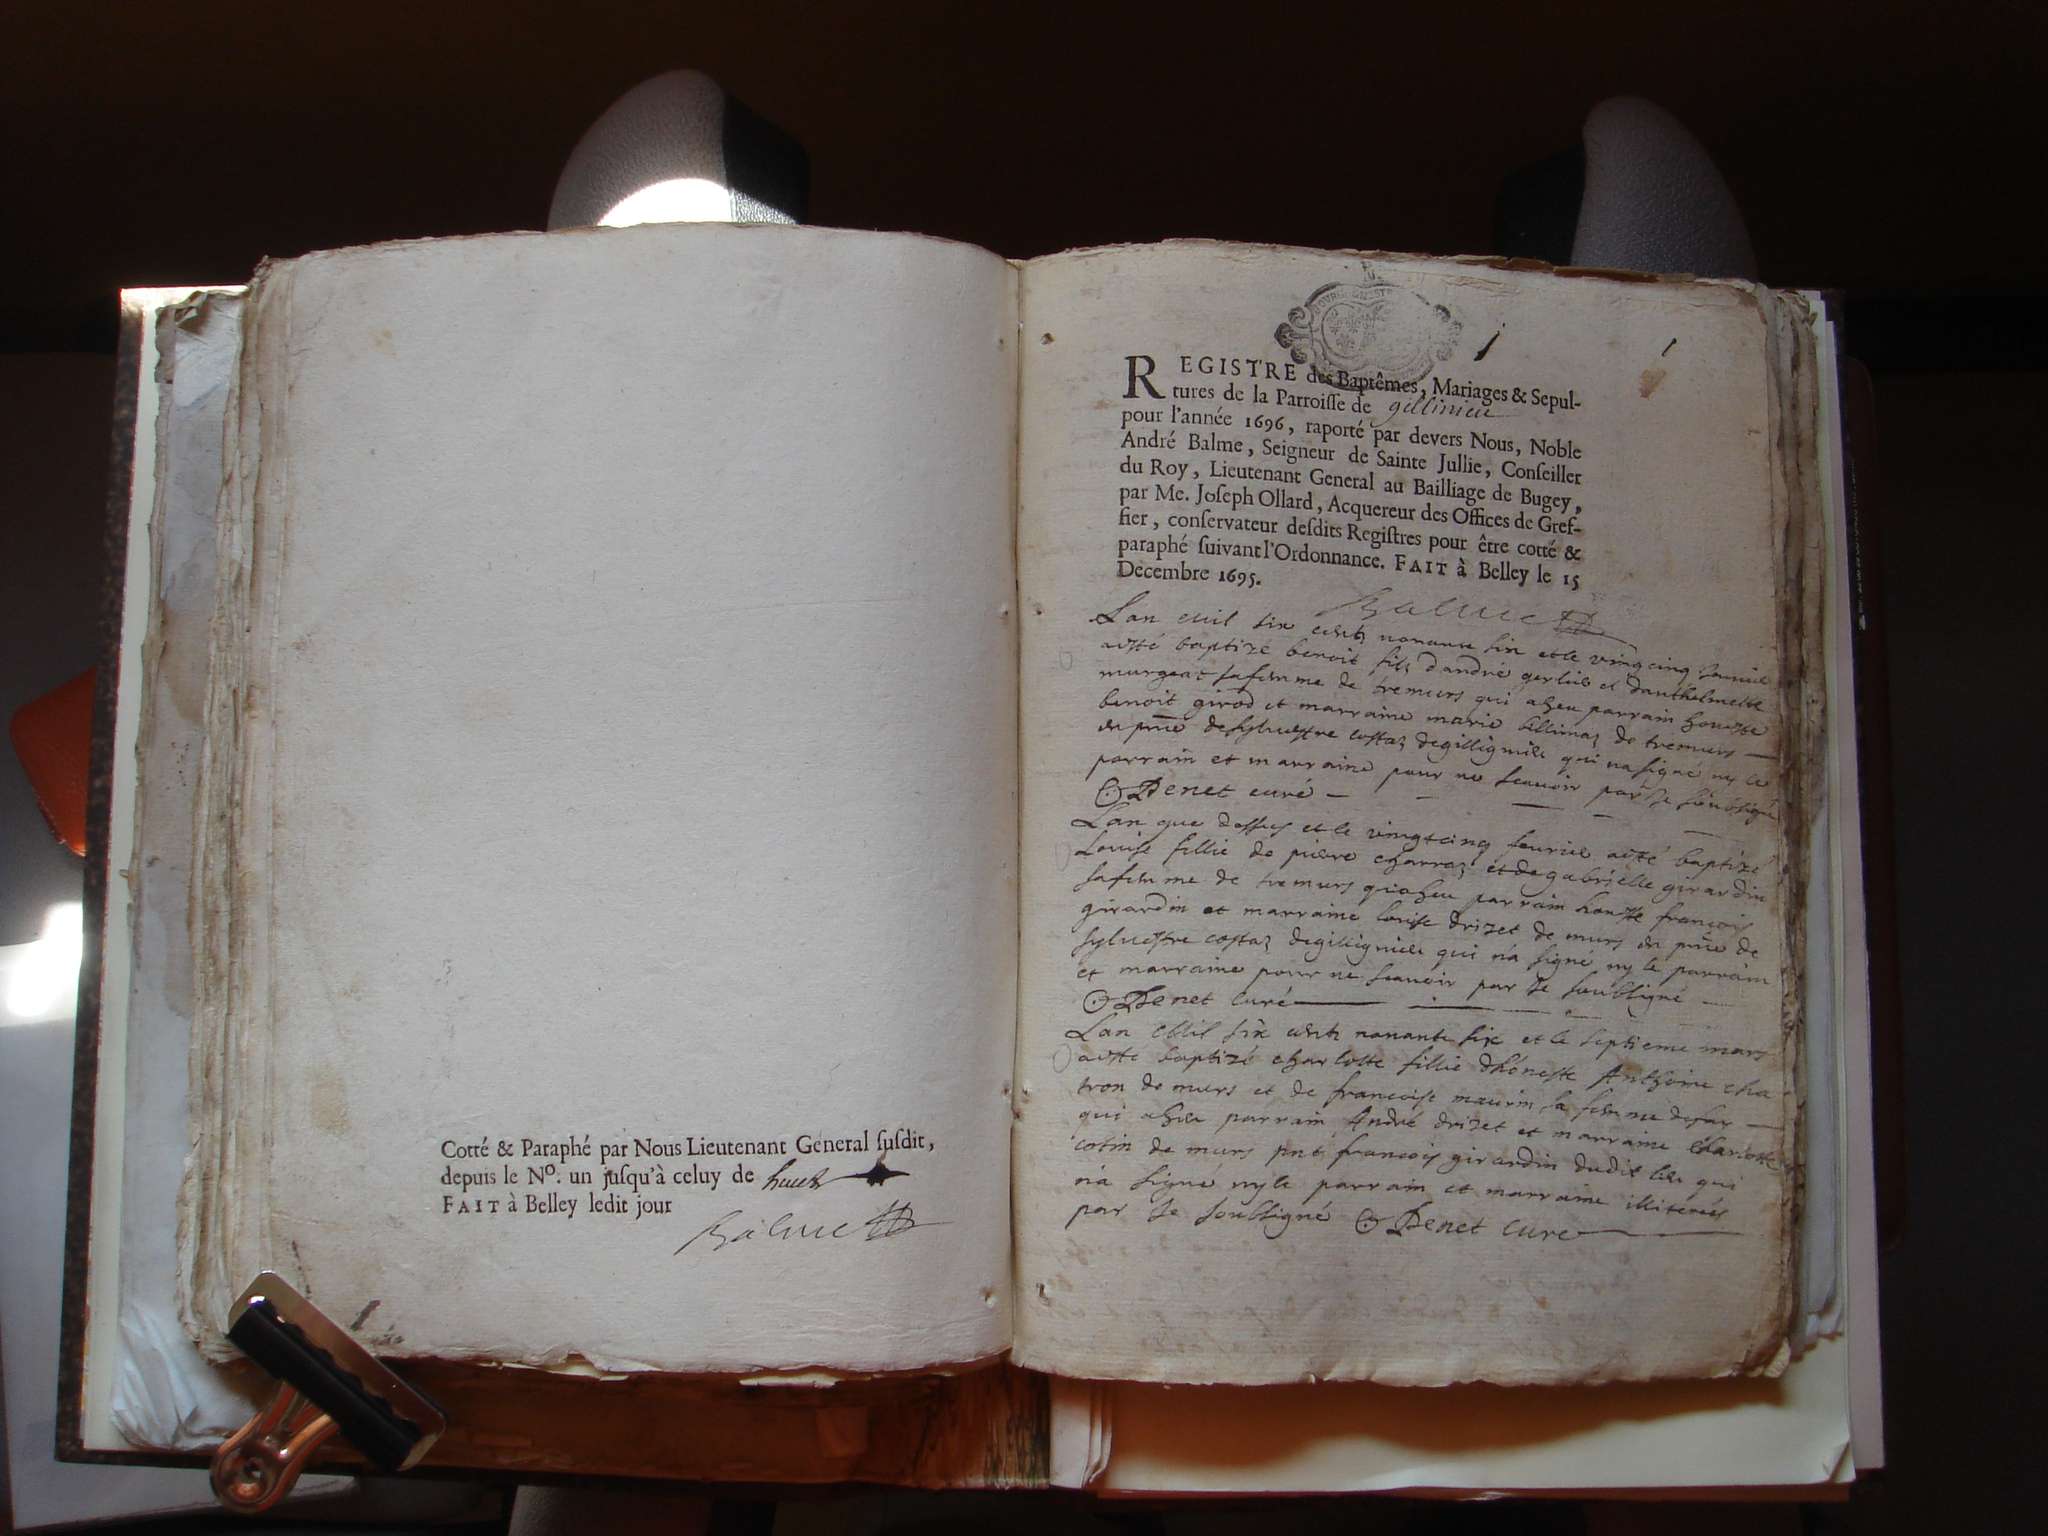 Cotté & Paraphé par Nous Lieutenant General ſuſdit,
depuis le Nº. un juſqu'à celuy de huict
FAIT à Belley ledit jour
Balme
1
1
REGISTRE des Baptêmes, Mariages & Sepul-
tures de la Parroiſſe de gillinieu
pour l'année 1696, raporté par devers Nous, Noble
André Balme, Seigneur de Sainte Jullie, Conſeiller
du Roy, Lieutenant General au Bailliage de Bugey,
par Me. Joſeph Ollard, Acquereur des Offices de Gref-
fier, conſervateur deſdits Regiſtres pour être cotté &
paraphé ſuivant l'Ordonnance. FAIT à Belley le 15
Decembre 1695.
Balme
Lan mil six cents nonante six et le vingcinq
a esté baptizé benoit fils dandré gerlie et danthelmette
murgeat sa femme de tremurs qui a heu parrain honeste
benoit girod et marraine marie de tremurs
en pnce de sylvestre costaz qui na signé ny le
parrain et marraine pour ne scauoir par je soubsigné
Denet curé
Lan que dessus et le vingtcinq feurier a esté baptizé
Louise fillie de pierre charraz et de gabrielle girardin
sa femme de tremurs qui a heu parrain honeste françois
girardin et marraine louise drizet de murs en pnce de
sylvestre costaz qui n'a signé ny le parrain
et marraine pour ne scauoir par je soubsigné
Denet curé
Lan Mil six cents nonante six et le septieme mars
a esté baptizé charlotte fillie dhoneste Anthoine cha
tron de murs et de francoise maurin sa femme
qui a heu parrain André drizet et marraine charlotte
cotin de murs pnt francois girardin dudit lieu qui
n'a signé ny le parrain et marraine illiterés
par je soubsigné Denet cure